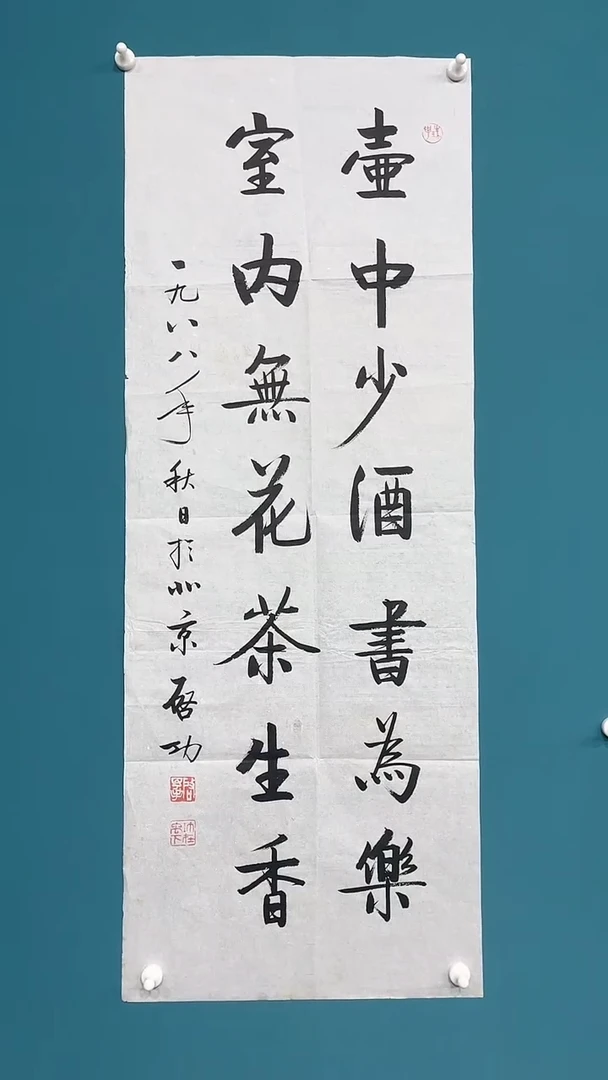 壺中少酒書為樂
室內無花茶生香
一九八八年秋日於北京啓功